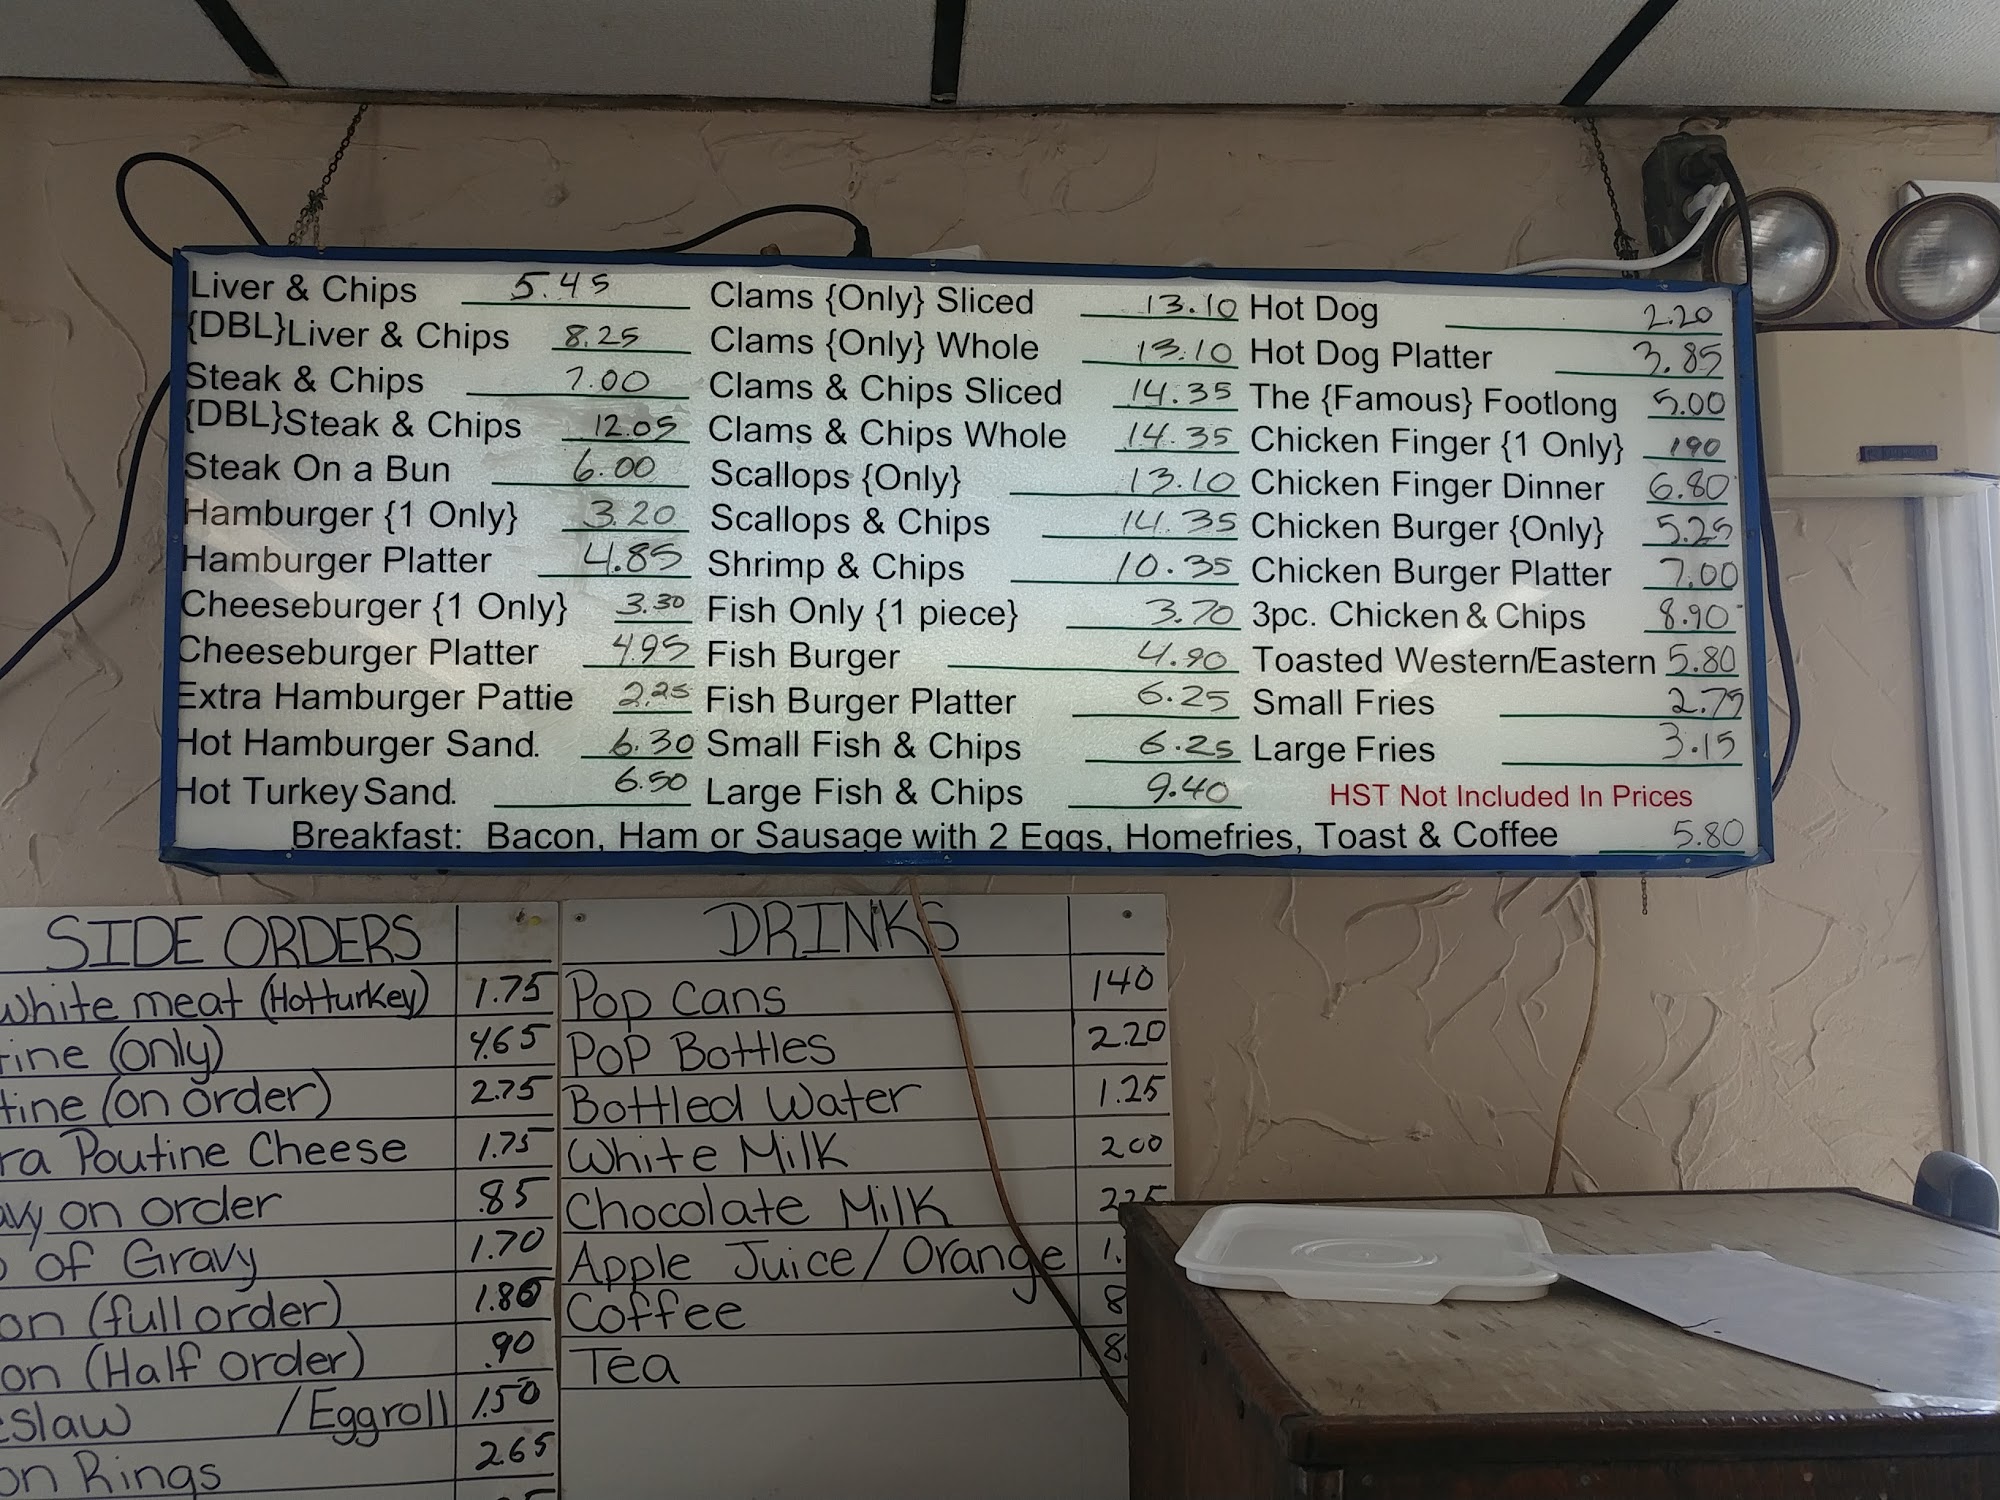 Liver & Chips 5.45
{DBL}Liver & Chips 8.25
Steak & Chips 7.00
{DBL}Steak & Chips 12.05
Steak On a Bun 6.00
Hamburger {1 Only} 3.20
Hamburger Platter 4.85
Cheeseburger {1 Only} 3.30
Cheeseburger Platter 4.95
Extra Hamburger Pattie 2.25
Hot Hamburger Sand. 6.30
Hot Turkey Sand. 6.50
Clams {Only} Sliced 13.10
Clams {Only} Whole 13.10
Clams & Chips Sliced 14.35
Clams & Chips Whole 14.35
Scallops {Only} 13.10
Scallops & Chips 14.35
Shrimp & Chips 10.35
Fish Only {1 piece} 3.70
Fish Burger 4.90
Fish Burger Platter 6.25
Small Fish & Chips 6.25
Large Fish & Chips 9.40
Hot Dog 2.20
Hot Dog Platter 3.85
The {Famous} Footlong 5.00
Chicken Finger {1 Only} 190
Chicken Finger Dinner 6.80
Chicken Burger {Only} 5.25
Chicken Burger Platter 7.00
3pc. Chicken & Chips 8.90
Toasted Western/Eastern 5.80
Small Fries 2.75
Large Fries 3.15
HST Not Included In Prices
Breakfast: Bacon, Ham or Sausage with 2 Eggs, Homefries, Toast & Coffee 5.80
SIDE ORDERS
white meat (Hot turkey) 1.75
(only) 4.65
(on order) 2.75
Poutine Cheese 1.75
on order .85
of Gravy 1.70
(full order) 1.80
(Half order) .90
/Eggroll 1.50
Rings 2.65
DRINKS
Pop Cans 140
Pop Bottles 2.20
Bottled Water 1.25
White Milk 200
Chocolate Milk 225
Apple Juice/Orange
Coffee
Tea